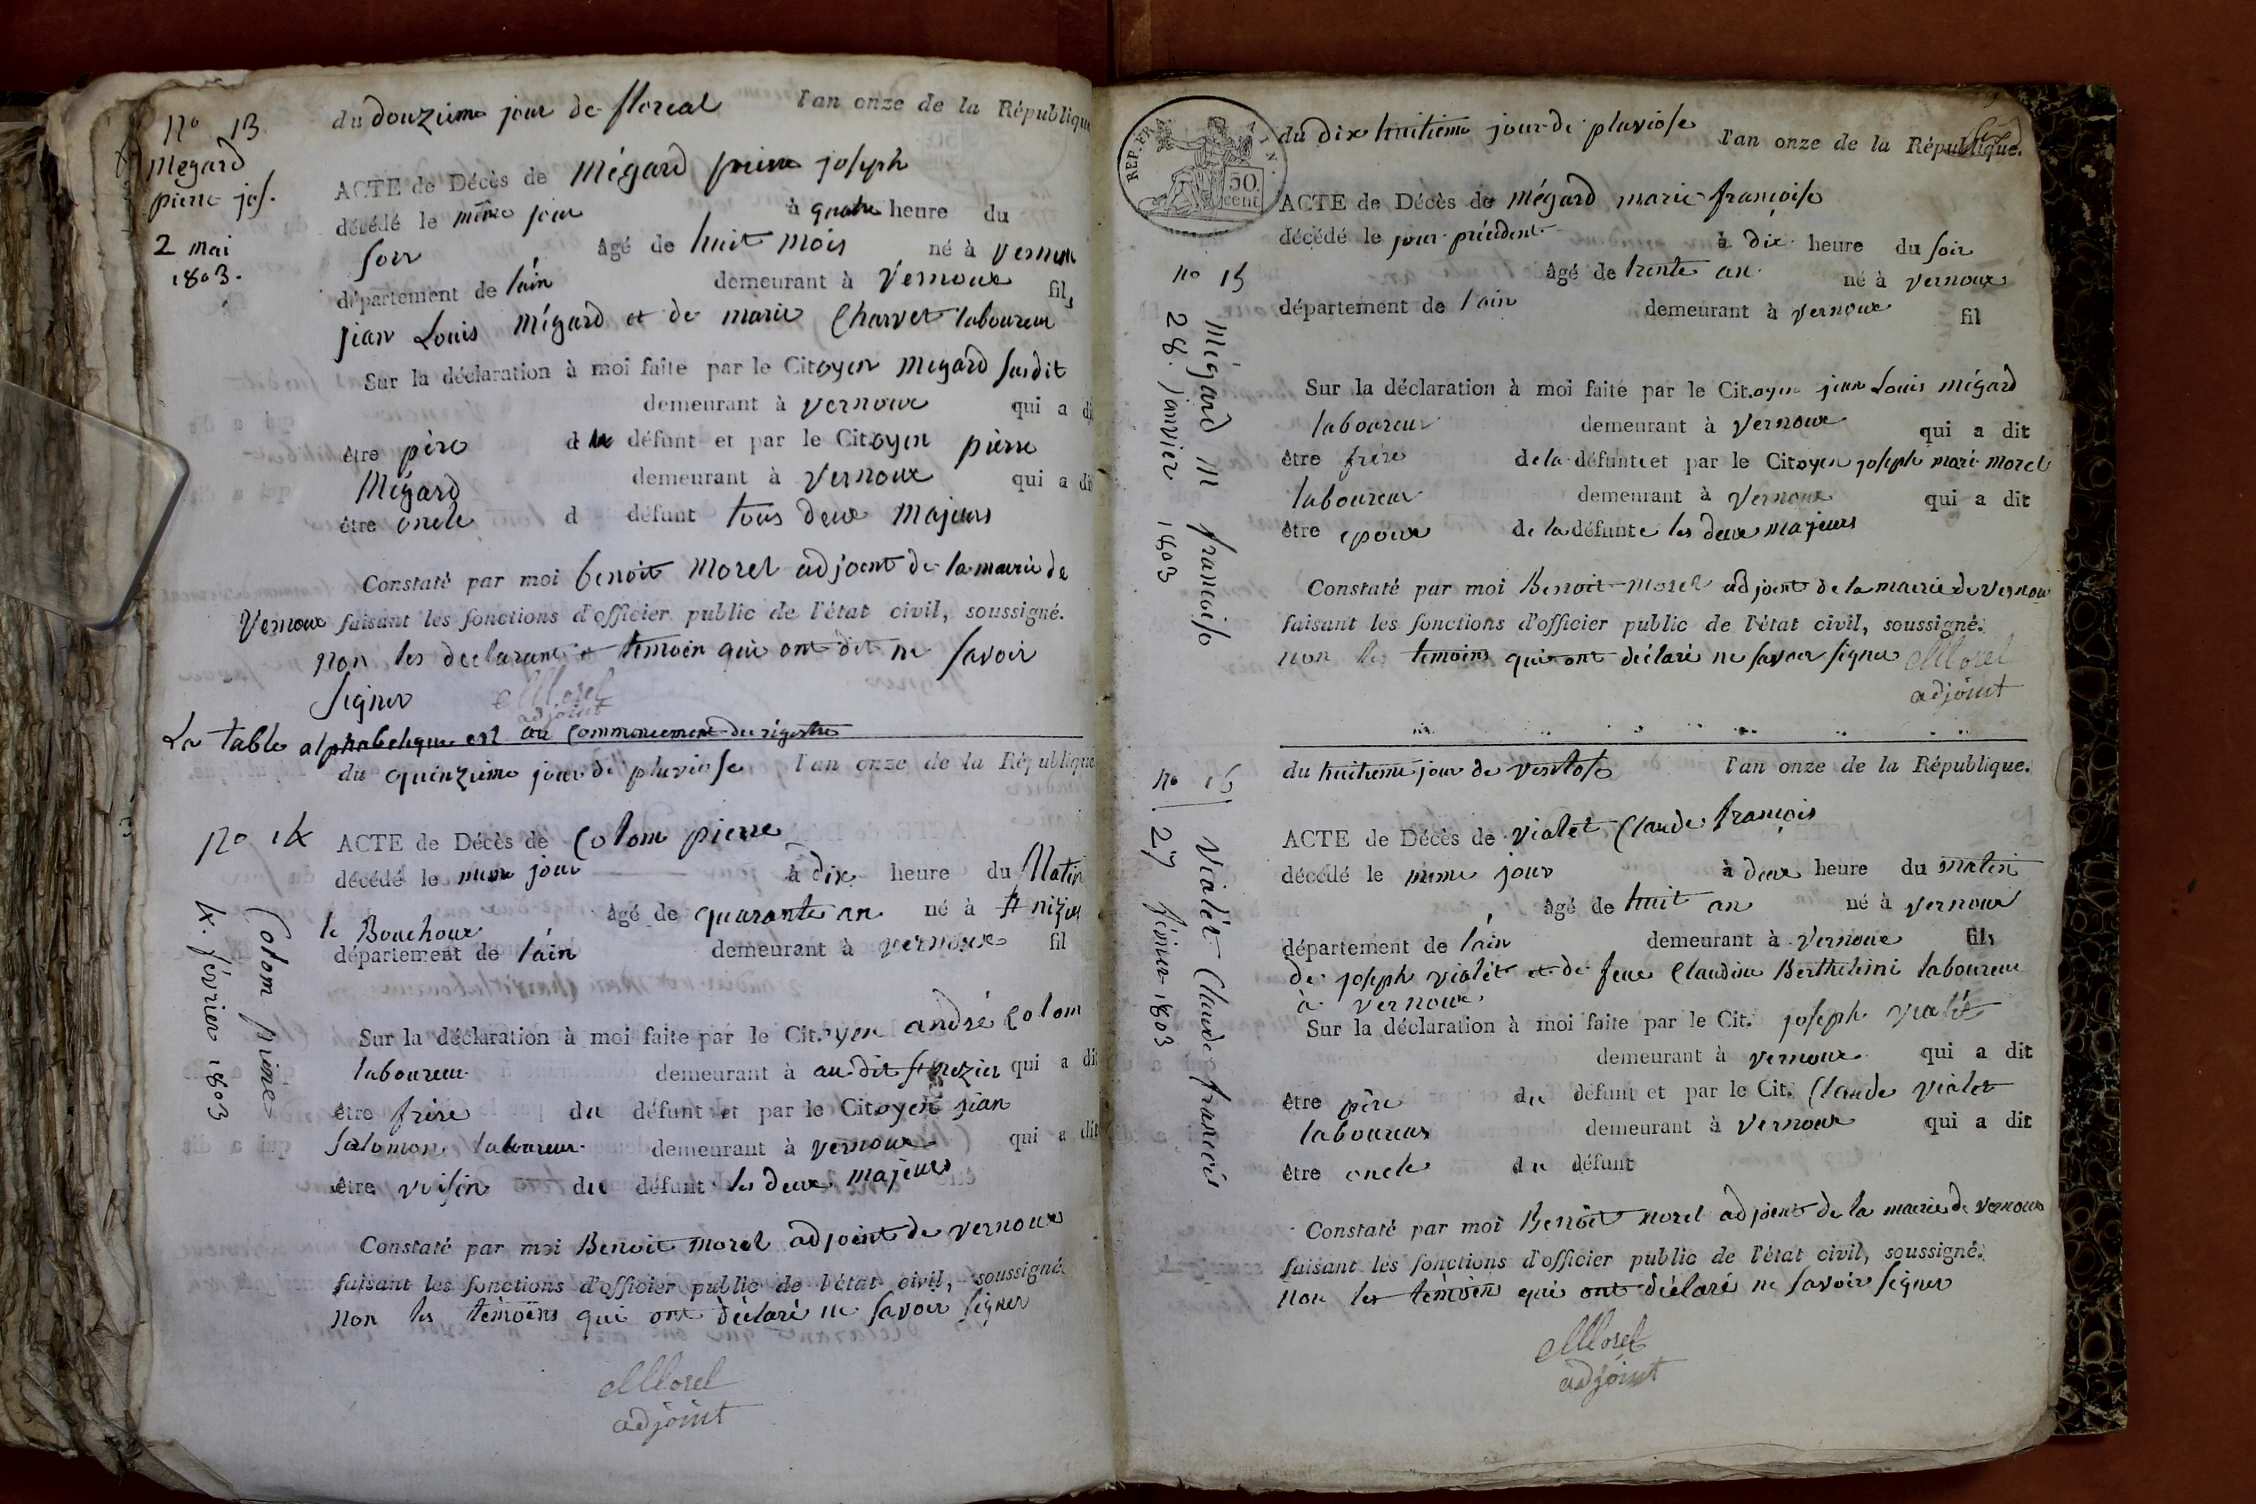 n° 13
Mégard
pierre jos.
2 mai
1803.
du douzieme jour de floreal l'an onze de la République
ACTE de Décès de Mégard pierre joseph
décédé le même jour à quatre heure du
soir âgé de huit mois né à vernoux
département de l'ain demeurant à Vernoux fils
jean Louis Mégard et de marie Charvet laboureur
Sur la déclaration à moi faite par le Citoyen Mégard susdit
demeurant à vernoux qui a dit
être père du défunt et par le Citoyen pierre
Mégard demeurant à Vernoux qui a dit
être oncle d défunt tous deux majeurs
Constaté par moi benoit Morel adjoint de la mairie de
Vernoux faisant les fonctions d'officier public de l'état civil, soussigné.
non les declarant et temoin qui ont dit ne savoir
signer Morel
adjoint
La table alphabetique est au Commencement du registre
du quinzieme jour de pluviose l'an onze de la République
n° 14
Colom pierre
4. février 1803
ACTE de Décès de Colom pierre
décédé le meme jour à dix heure du Matin
âgé de quarante an né à St nizier
le Bouchoux
département de l'ain demeurant à vernoux fil
Sur la déclaration à moi faite par le Cit.yen andré Colom
laboureur demeurant à au dit St nezier qui a dit
être frère du défunt et par le Citoyen jean
salomon laboureur demeurant à vernoux qui a dit
être voisin du défunt les deux majeurs
Constaté par moi Benoit morel adjoint de vernoux
faisant les fonctions d'officier public de l'état civil, soussigné
non les témoins qui ont déclaré ne savoir signer
Morel
adjoint
REP. FRA.
50.
cent.
du dix huitieme jour de pluviose l'an onze de la République.
ACTE de Décès de mégard marie françoise
décédé le jour précédent à dix heure du soir
âgé de trente an né à vernoux
département de l'ain demeurant à vernoux fil
n° 15
Mégard M françoise
28. janvier 1803
Sur la déclaration à moi faite par le Cit.oyen jean Louis mégard
laboureur demeurant à vernoux qui a dit
être frère de la défunte et par le Citoyen joseph marie morel
laboureur demeurant à vernoux qui a dit
être epoux de la défunte les deux majeurs
Constaté par moi Benoit morel adjoint de la mairie de vernoux
faisant les fonctions d'officier public de l'état civil, soussigné.
non les temoins qui ont déclaré ne savoir signer Morel
adjoint
du huitieme jour de ventose l'an onze de la République.
n° 16
Vialet Claude françois
27 février 1803
ACTE de Décès de vialet Claude françois
décédé le meme jour à deux heure du matin
âgé de huit an né à vernoux
département de l'ain demeurant à vernoux fils
de joseph vialet et de feue Claudine Berthelemi laboureur
à vernoux
Sur la déclaration à moi faite par le Cit. joseph vialet
demeurant à vernoux qui a dit
être père du défunt et par le Cit. Claude vialet
laboureur demeurant à vernoux qui a dit
être oncle du défunt
Constaté par moi Benoit morel adjoint de la mairie de vernoux
faisant les fonctions d'officier public de l'état civil, soussigné.
non les témoin qui ont déclaré ne savoir signer
Morel
adjoint